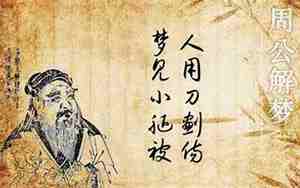 周公解梦
人用刀劃伤
梦见小腿被